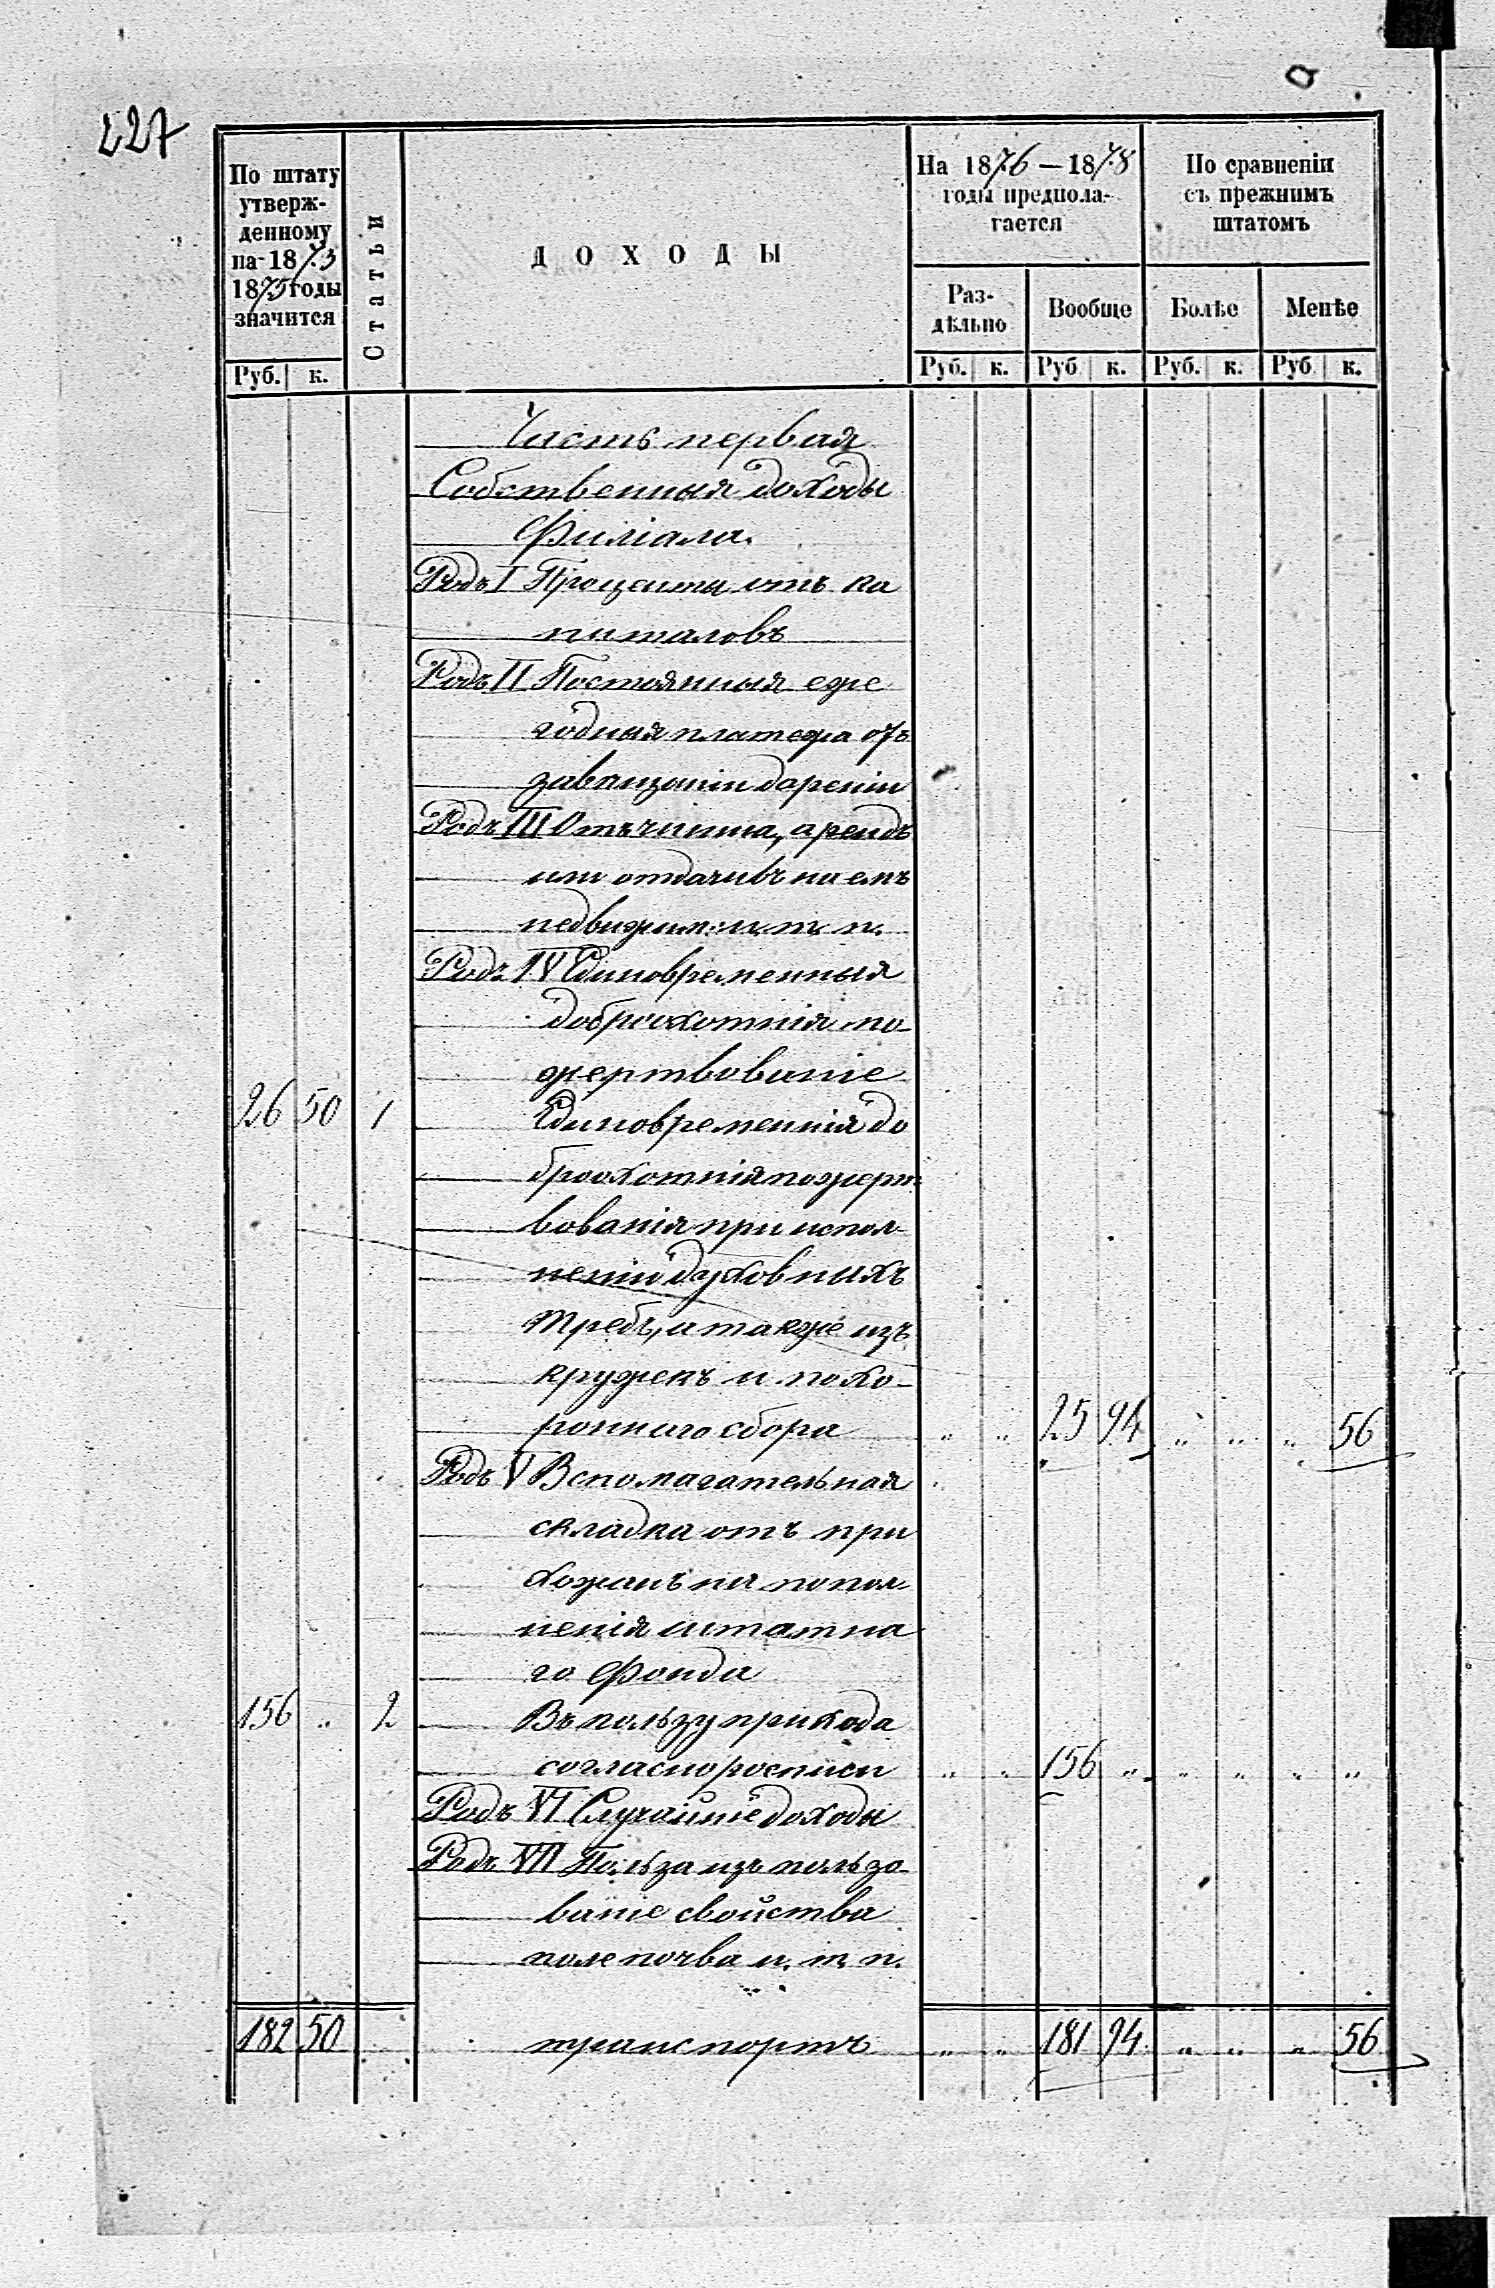 227
По штату
утверж-
денному
на 1873
1875 годы
значится
Руб. к.
Статьи
ДОХОДЫ
На 1876 — 1878
годы предпола-
гается
Раз-
дѣльно
Вообще
Руб. к. Руб. к.
По сравненіи
съ прежнимъ
штатомъ
Болѣе
Менѣе
Руб. к. Руб. к.
Часть первая
Собственныя доходы
Филіала.
Родъ I Проценты отъ ка
питаловъ
Родъ II Постоянныя еже
годныя платежа отъ
завѣщаніи дареніи
Родъ III Отъ чинша, арендъ
или отдачи въ наемъ
недвижим: и. т. п.
Родъ IV Единовременныя
доброохотнія по-
жертвованіе
26 50 1 Единовременнія до
броохотнія пожерт
вованія при испол-
неніи духовныхъ
требъ, а также изъ
кружекъ и похо-
роннаго сбора „ „ 25 94 „ „ „ 56
Родъ V Вспомагательная
складка отъ при
хожанъ на попол-
ненія штатна
го фонда
156 „ 2 Въ пользу прихода
согласно росписи „ „ 156 „ „ „ „ „
Родъ VI Случайніе доходы
Родъ VII Польза изъ пользо-
ваніе свойства
поле почва и. т. п.
182 50 транспортъ „ „ 181 94 „ „ „ 56